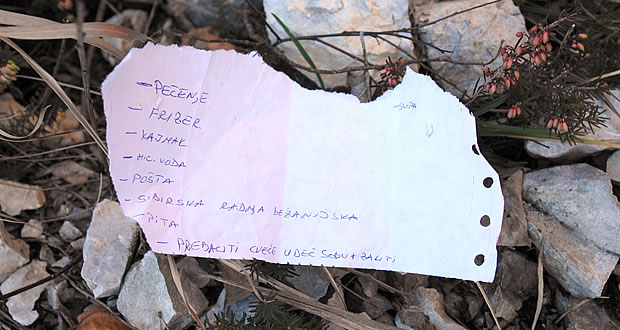 - PEČENJE
- FRIZER
- KAJMAK
- MIC. VODA
- POŠTA
- SIBIRSKA RADNJA BEŽANIJSKA
- PITA
- PREBACITI CVEĆE U DEČ SOBU + ZALITI
- SUPA